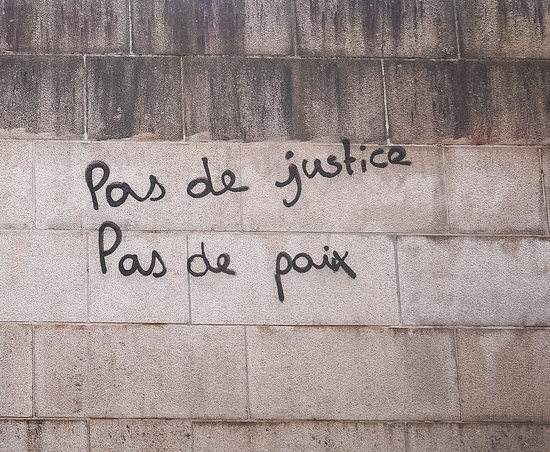 Pas de justice
Pas de paix